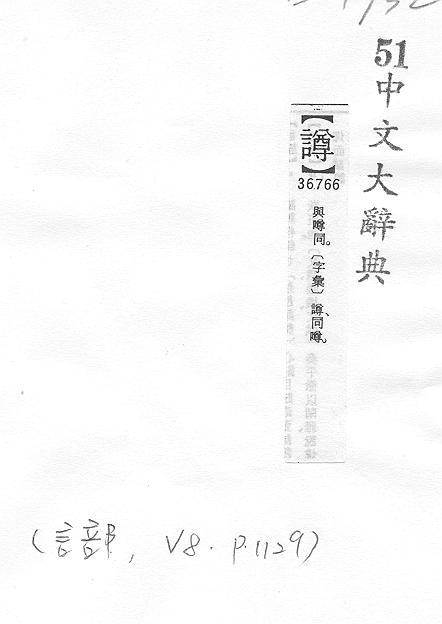 51
中文大辭典
【譐】
36766
與噂同。〔字彙〕譐、同噂。
(言部, V8. p.1129)